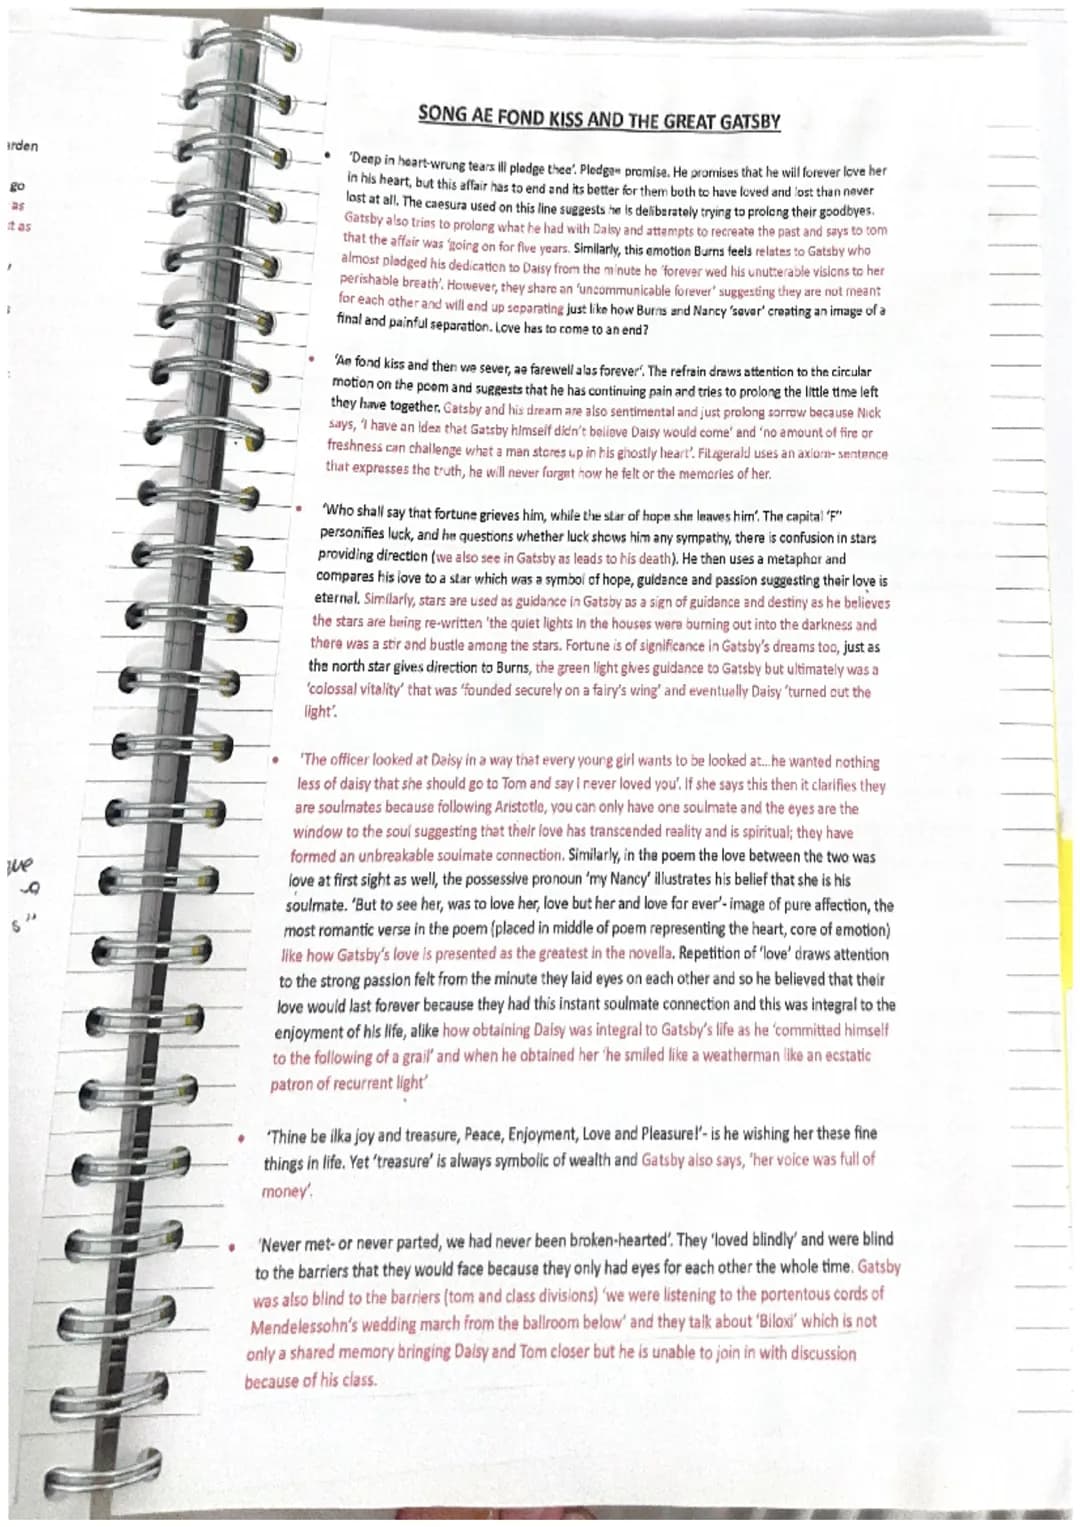 arden
go
as
t as
SONG AE FOND KISS AND THE GREAT GATSBY
• 'Deep in heart-wrung tears ill pledge thee'. Pledge= promise. He promises that he will forever love her
in his heart, but this affair has to end and its better for them both to have loved and lost than never
lost at all. The caesura used on this line suggests he is deliberately trying to prolong their goodbyes.
Gatsby also tries to prolong what he had with Daisy and attempts to recreate the past and says to tom
that the affair was 'going on for five years. Similarly, this emotion Burns feels relates to Gatsby who
almost pledged his dedication to Daisy from the minute he 'forever wed his unutterable visions to her
perishable breath'. However, they share an 'uncommunicable forever' suggesting they are not meant
for each other and will end up separating just like how Burns and Nancy 'sever' creating an image of a
final and painful separation. Love has to come to an end?
• 'Ae fond kiss and then we sever, ae farewell alas forever'. The refrain draws attention to the circular
motion on the poem and suggests that he has continuing pain and tries to prolong the little time left
they have together. Gatsby and his dream are also sentimental and just prolong sorrow because Nick
says, 'I have an idea that Gatsby himself didn't believe Daisy would come' and 'no amount of fire or
freshness can challenge what a man stores up in his ghostly heart'. Fitzgerald uses an axiom- sentence
that expresses the truth, he will never forget how he felt or the memories of her.
• 'Who shall say that fortune grieves him, while the star of hope she leaves him'. The capital 'F"
personifies luck, and he questions whether luck shows him any sympathy, there is confusion in stars
providing direction (we also see in Gatsby as leads to his death). He then uses a metaphor and
compares his love to a star which was a symbol of hope, guidance and passion suggesting their love is
eternal. Similarly, stars are used as guidance in Gatsby as a sign of guidance and destiny as he believes
the stars are being re-written 'the quiet lights in the houses were burning out into the darkness and
there was a stir and bustle among the stars. Fortune is of significance in Gatsby's dreams too, just as
the north star gives direction to Burns, the green light gives guidance to Gatsby but ultimately was a
'colossal vitality' that was 'founded securely on a fairy's wing' and eventually Daisy 'turned out the
light'.
• 'The officer looked at Daisy in a way that every young girl wants to be looked at...he wanted nothing
less of daisy that she should go to Tom and say I never loved you'. If she says this then it clarifies they
are soulmates because following Aristotle, you can only have one soulmate and the eyes are the
window to the soul suggesting that their love has transcended reality and is spiritual; they have
formed an unbreakable soulmate connection. Similarly, in the poem the love between the two was
love at first sight as well, the possessive pronoun 'my Nancy' illustrates his belief that she is his
soulmate. 'But to see her, was to love her, love but her and love for ever'- image of pure affection, the
most romantic verse in the poem (placed in middle of poem representing the heart, core of emotion)
like how Gatsby's love is presented as the greatest in the novella. Repetition of 'love' draws attention
to the strong passion felt from the minute they laid eyes on each other and so he believed that their
love would last forever because they had this instant soulmate connection and this was integral to the
enjoyment of his life, alike how obtaining Daisy was integral to Gatsby's life as he 'committed himself
to the following of a grail' and when he obtained her 'he smiled like a weatherman like an ecstatic
patron of recurrent light'
• 'Thine be ilka joy and treasure, Peace, Enjoyment, Love and Pleasure!'- is he wishing her these fine
things in life. Yet 'treasure' is always symbolic of wealth and Gatsby also says, 'her voice was full of
money'.
• 'Never met- or never parted, we had never been broken-hearted'. They 'loved blindly' and were blind
to the barriers that they would face because they only had eyes for each other the whole time. Gatsby
was also blind to the barriers (tom and class divisions) 'we were listening to the portentous cords of
Mendelessohn's wedding march from the ballroom below' and they talk about 'Biloxi' which is not
only a shared memory bringing Daisy and Tom closer but he is unable to join in with discussion
because of his class.